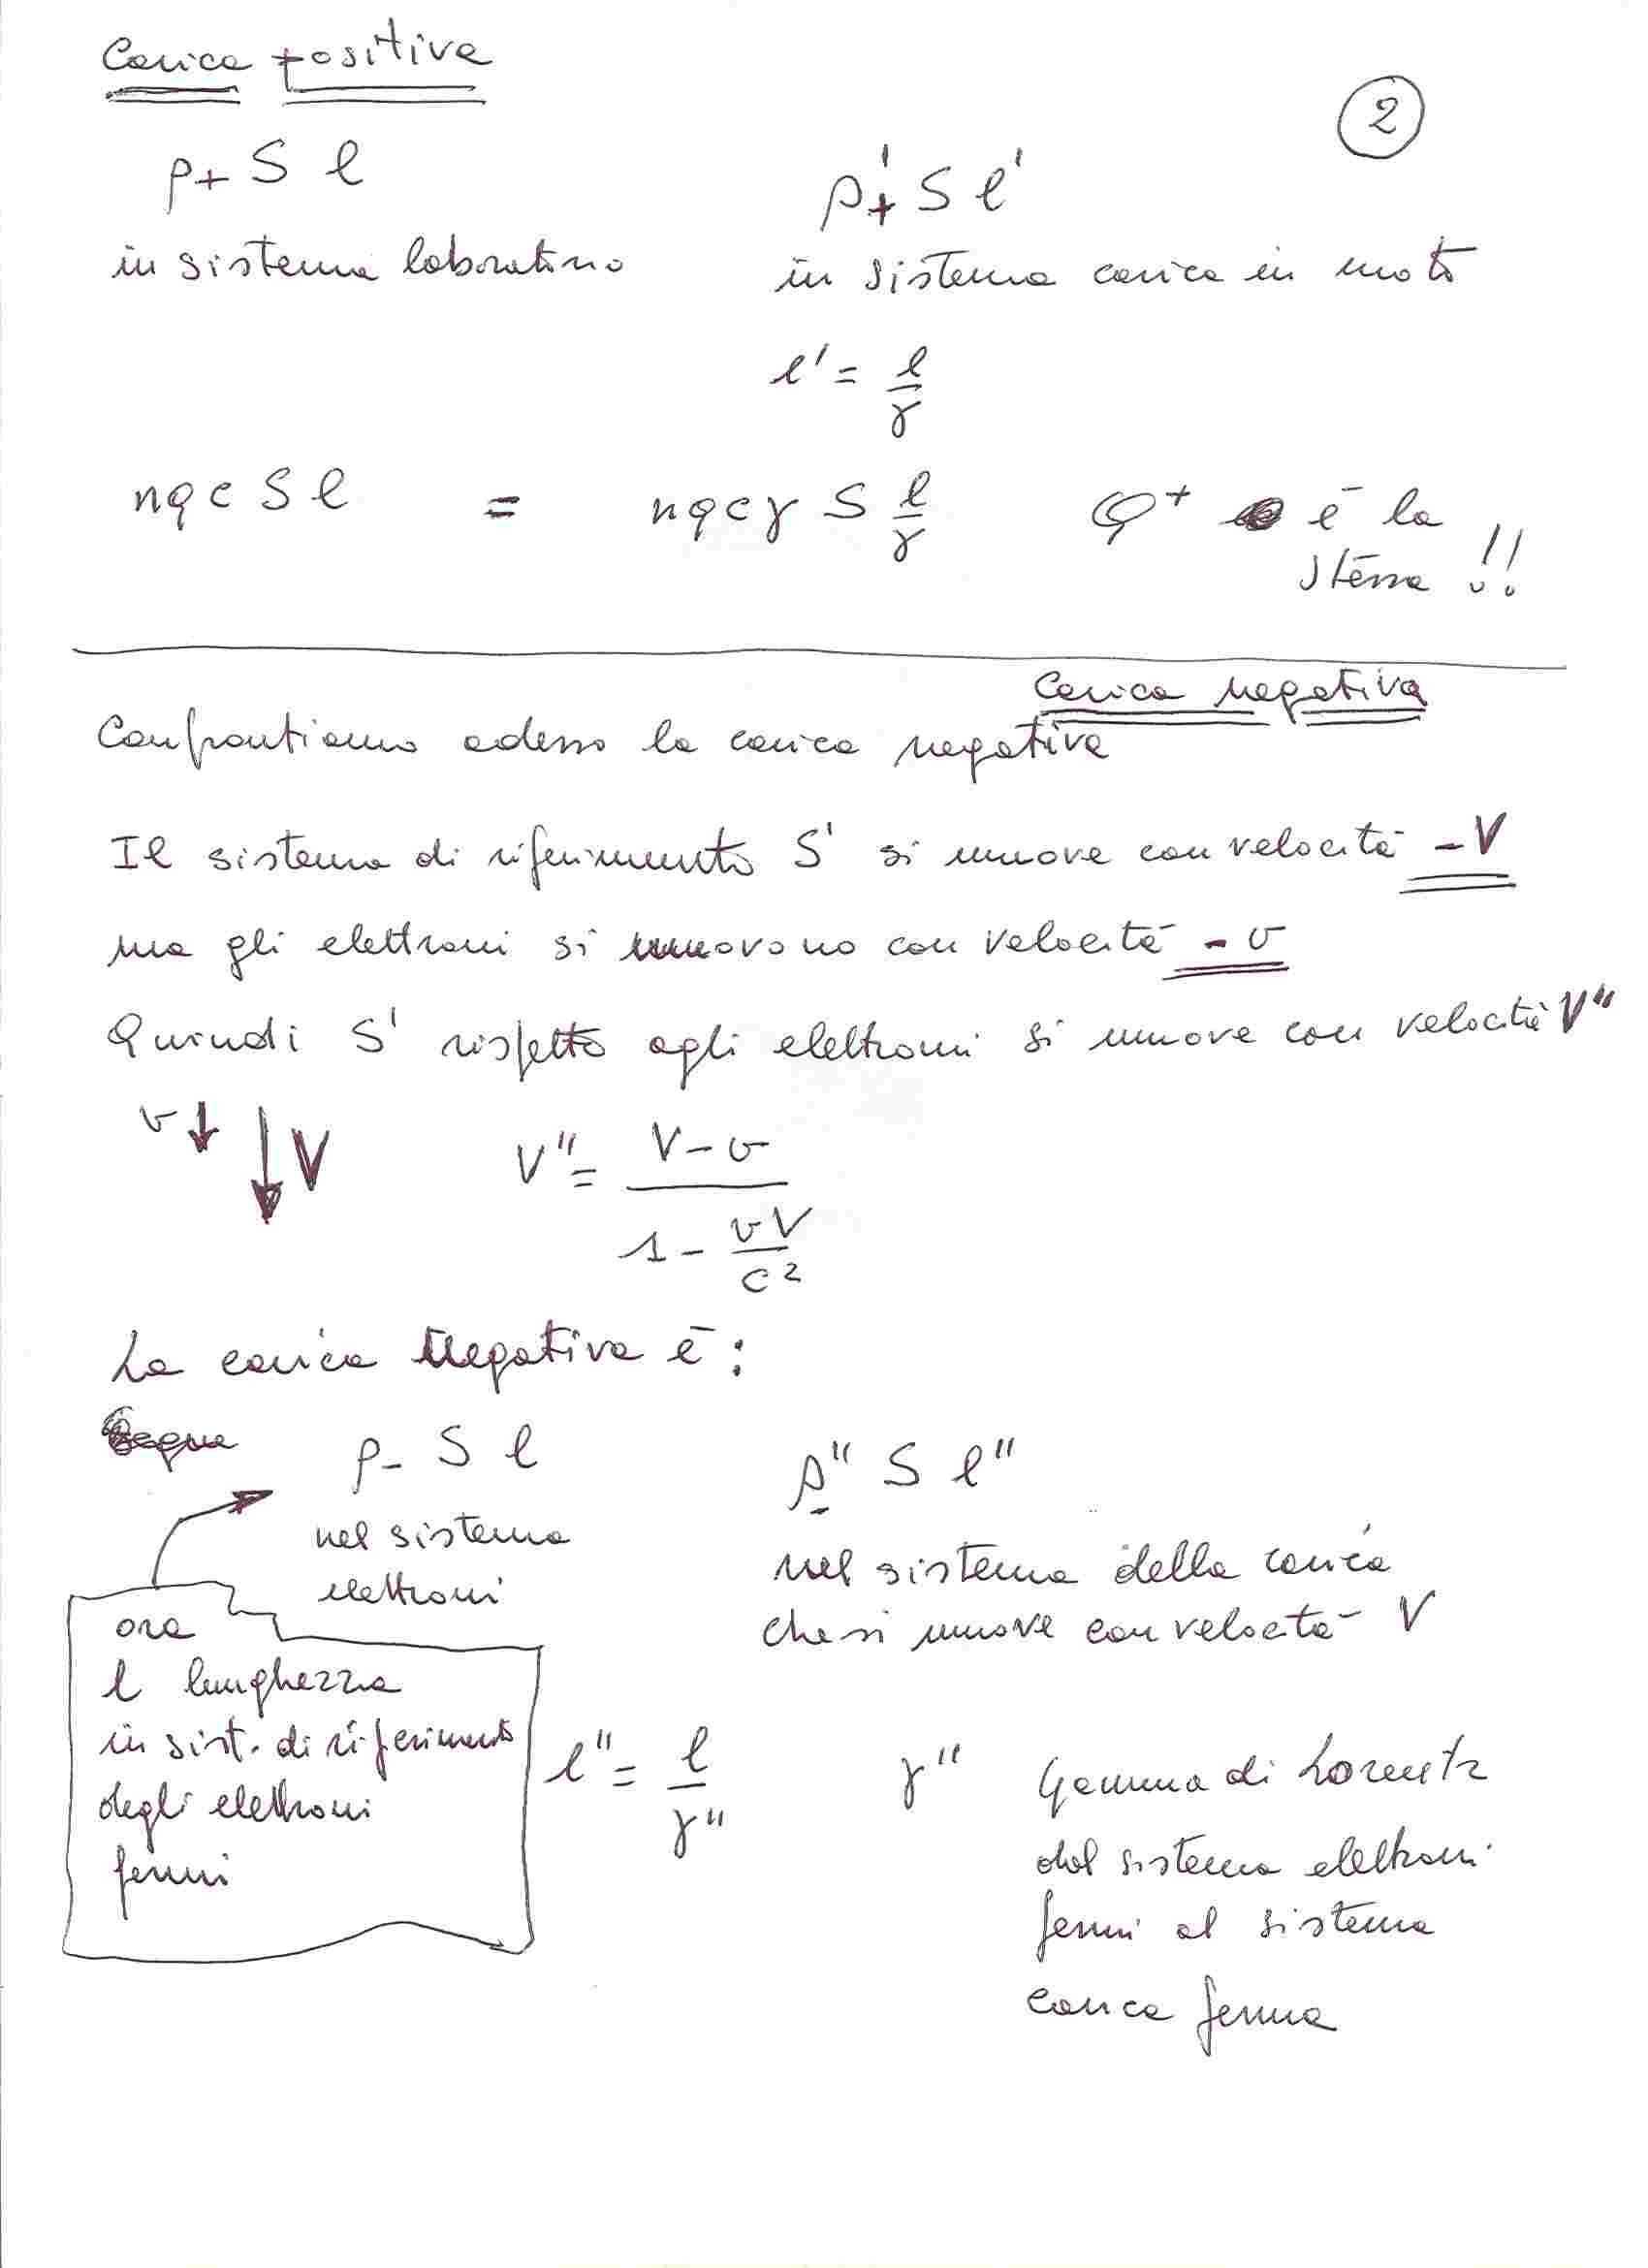 Carica positiva
2
ρ+ S l
ρ'+ S l'
in sistema laboratorio
in sistema carica in moto
l' = l/γ
nqc S l = nqcγ S l/γ
Q+ è la
stessa !!
Carica negativa
Confrontiamo adesso la carica negativa
Il sistema di riferimento S' si muove con velocità -V
ma gli elettroni si muovono con velocità -v
Quindi S' rispetto agli elettroni si muove con velocità V"
v ↓ ↓ V
V" = (V - v)/(1 - vV/c²)
La carica Negativa è:
ρ- S l
ρ-" S l"
nel sistema
elettroni
nel sistema della carica
che si muove con velocità V
ora
l lunghezza
in sist. di riferimento
degli elettroni
fermi
l" = l/γ"
γ" Gamma di Lorentz
dal sistema elettroni
fermi al sistema
carica ferma